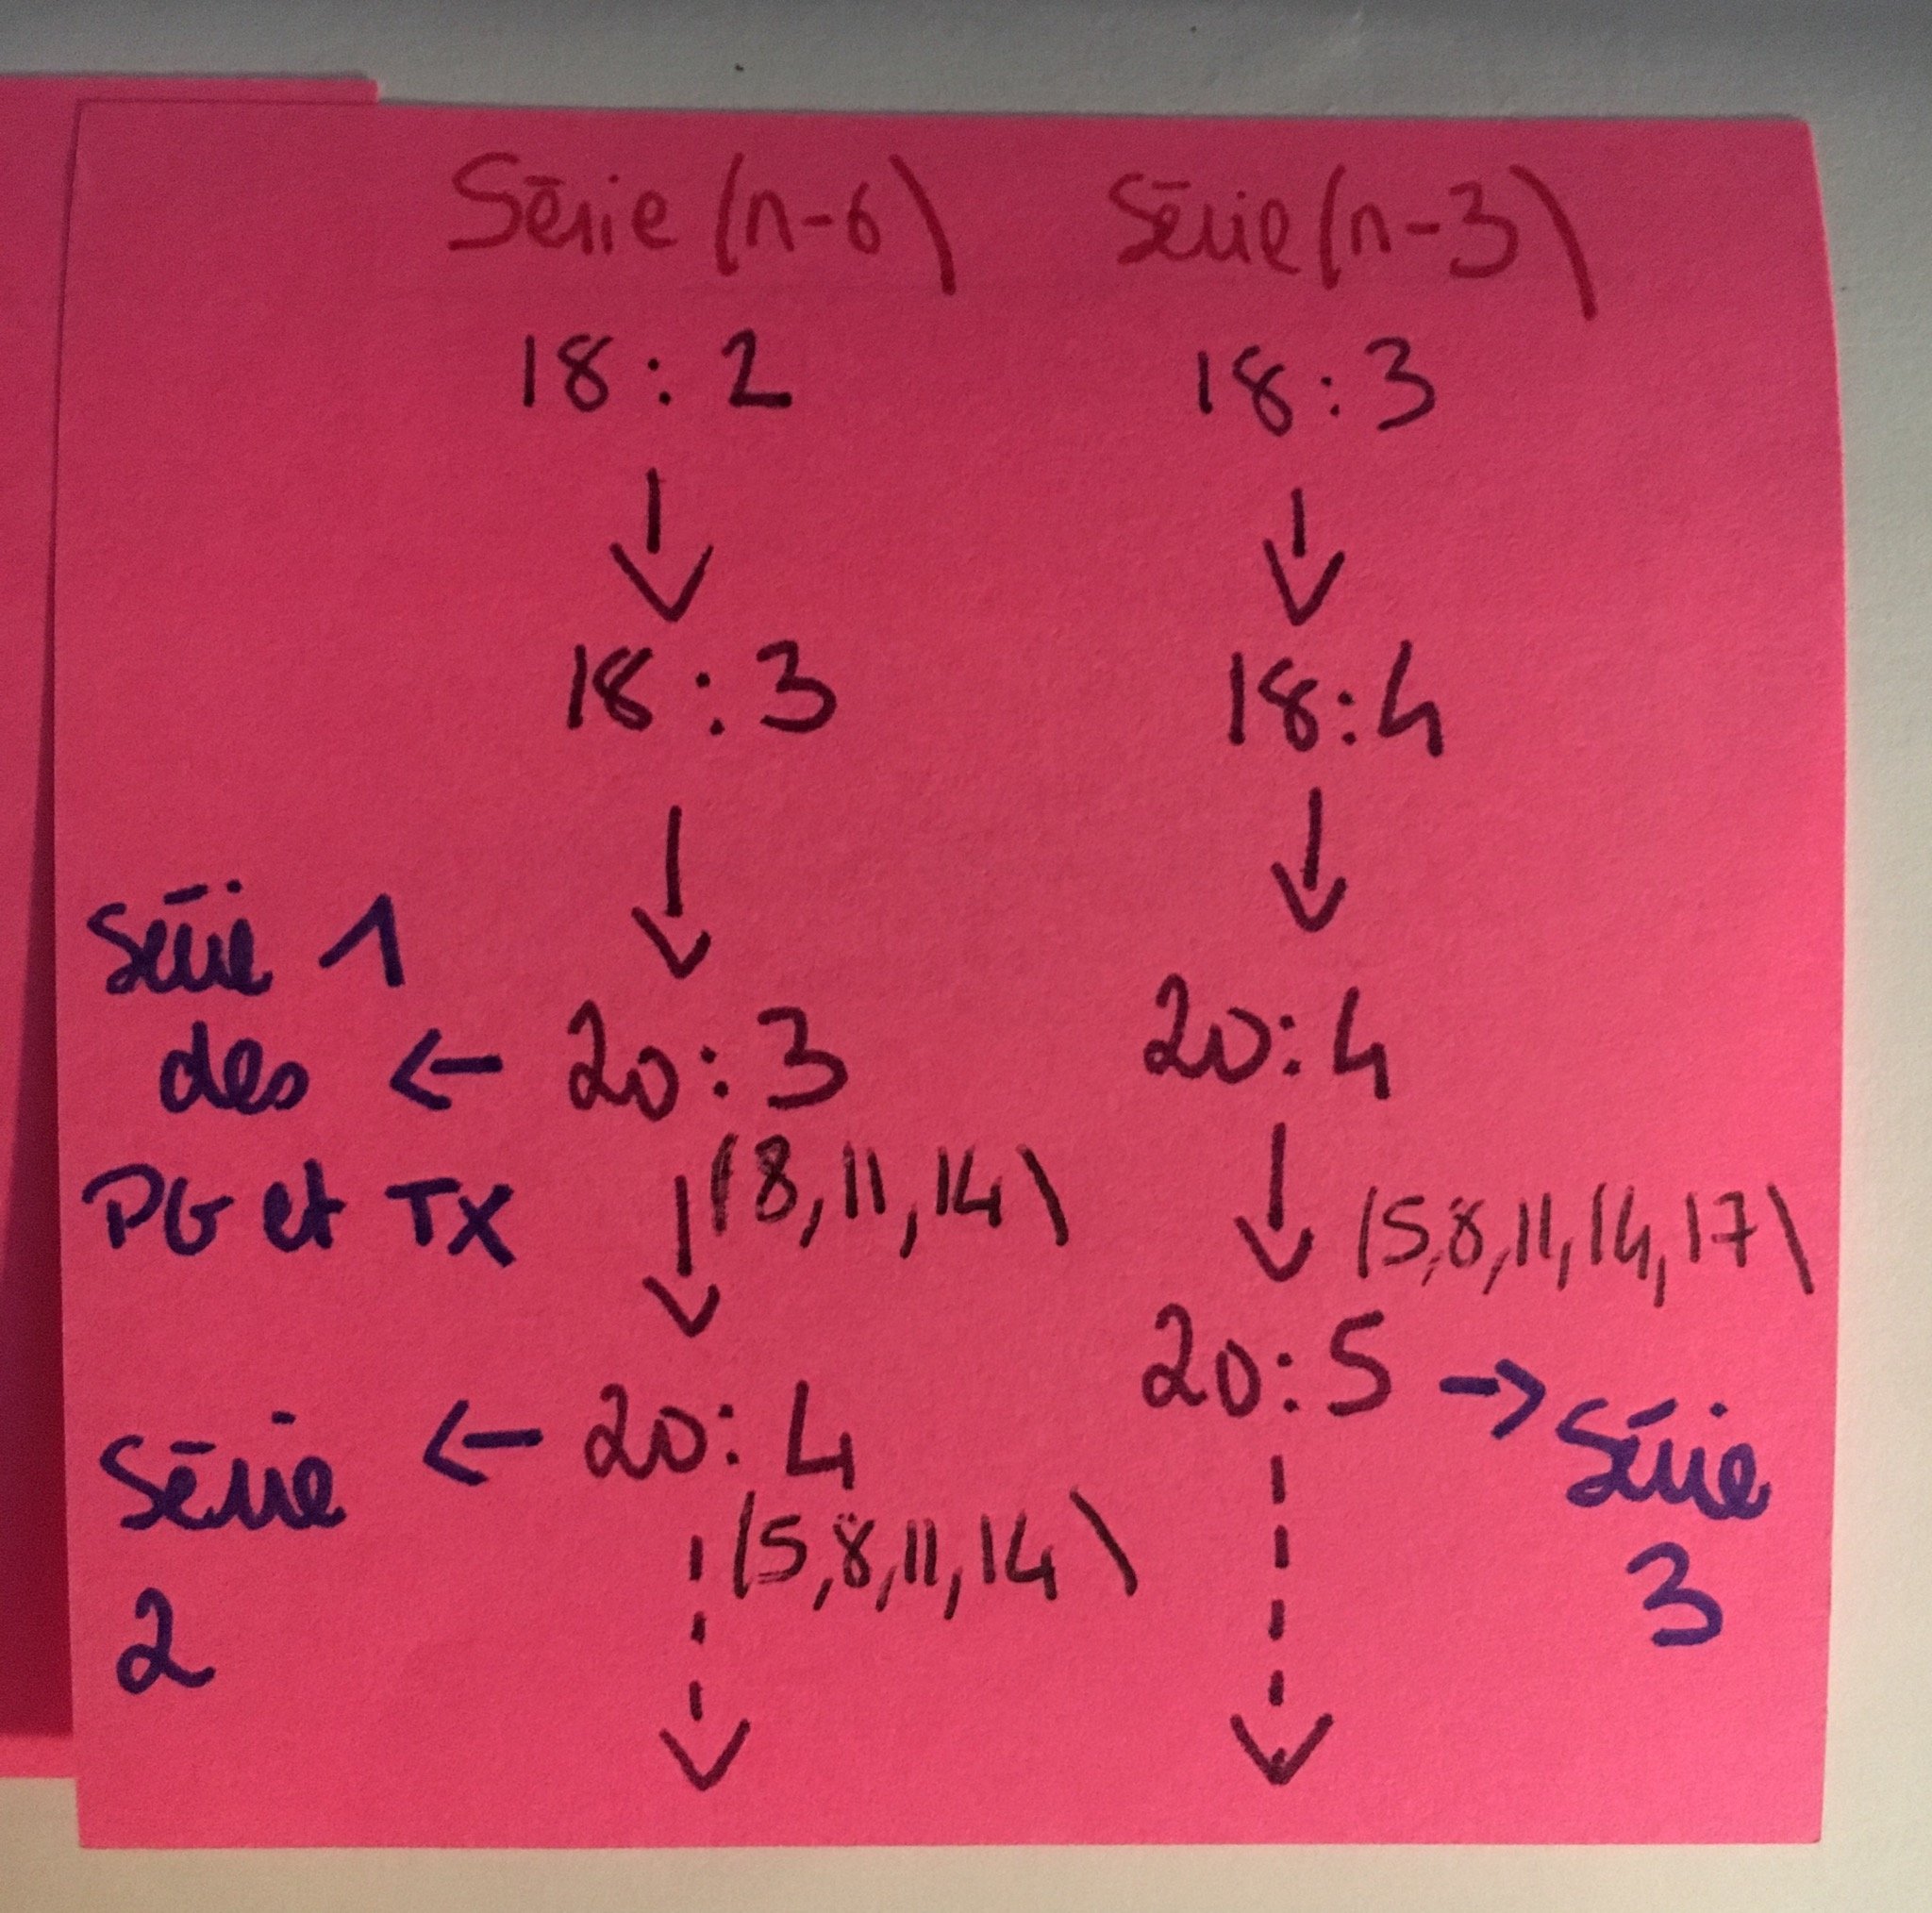 Série (n-6) Série (n-3)
18 : 2 18 : 3
↓ ↓
18 : 3 18 : 4
↓ ↓
Série 1
des ← 20 : 3 20 : 4
PG et TX ↓ (8, 11, 14) ↓ (5, 8, 11, 14, 17)
Série ← 20 : 4 20 : 5 → Série
2 (5, 8, 11, 14) 3